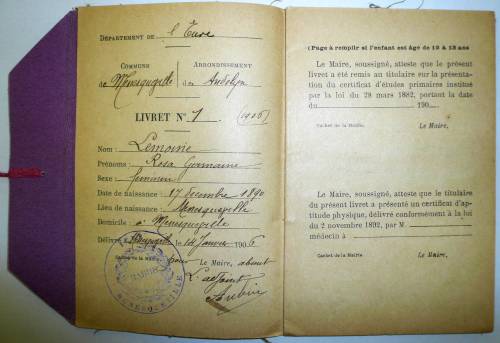 DÉPARTEMENT DE l'Eure
COMMUNE
ARRONDISSEMENT
de Mousqueville
d
LIVRET N° 1 (1906)
Nom : Lemoine
Prénoms : Rosa Germaine
Sexe : féminin
Date de naissance : 17 décembre 1890
Lieu de naissance :
Domicile : à
Délivré à le 18 Janvier 1906
Cachet de la Mairie. pour Le Maire, absent
L'adjoint
MAIRIE
(Page à remplir si l'enfant est âgé de 12 à 13 ans
Le Maire, soussigné, atteste que le présent
livret a été remis au titulaire sur la présenta-
tion du certificat d'études primaires institué
par la loi du 28 mars 1882, portant la date
du 190
Cachet de la Mairie. Le Maire,
Le Maire, soussigné, atteste que le titulaire
du présent livret a présenté un certificat d'ap-
titude physique, délivré conformément à la loi
du 2 novembre 1892, par M
médecin à
Cachet de la Mairie Le Maire,